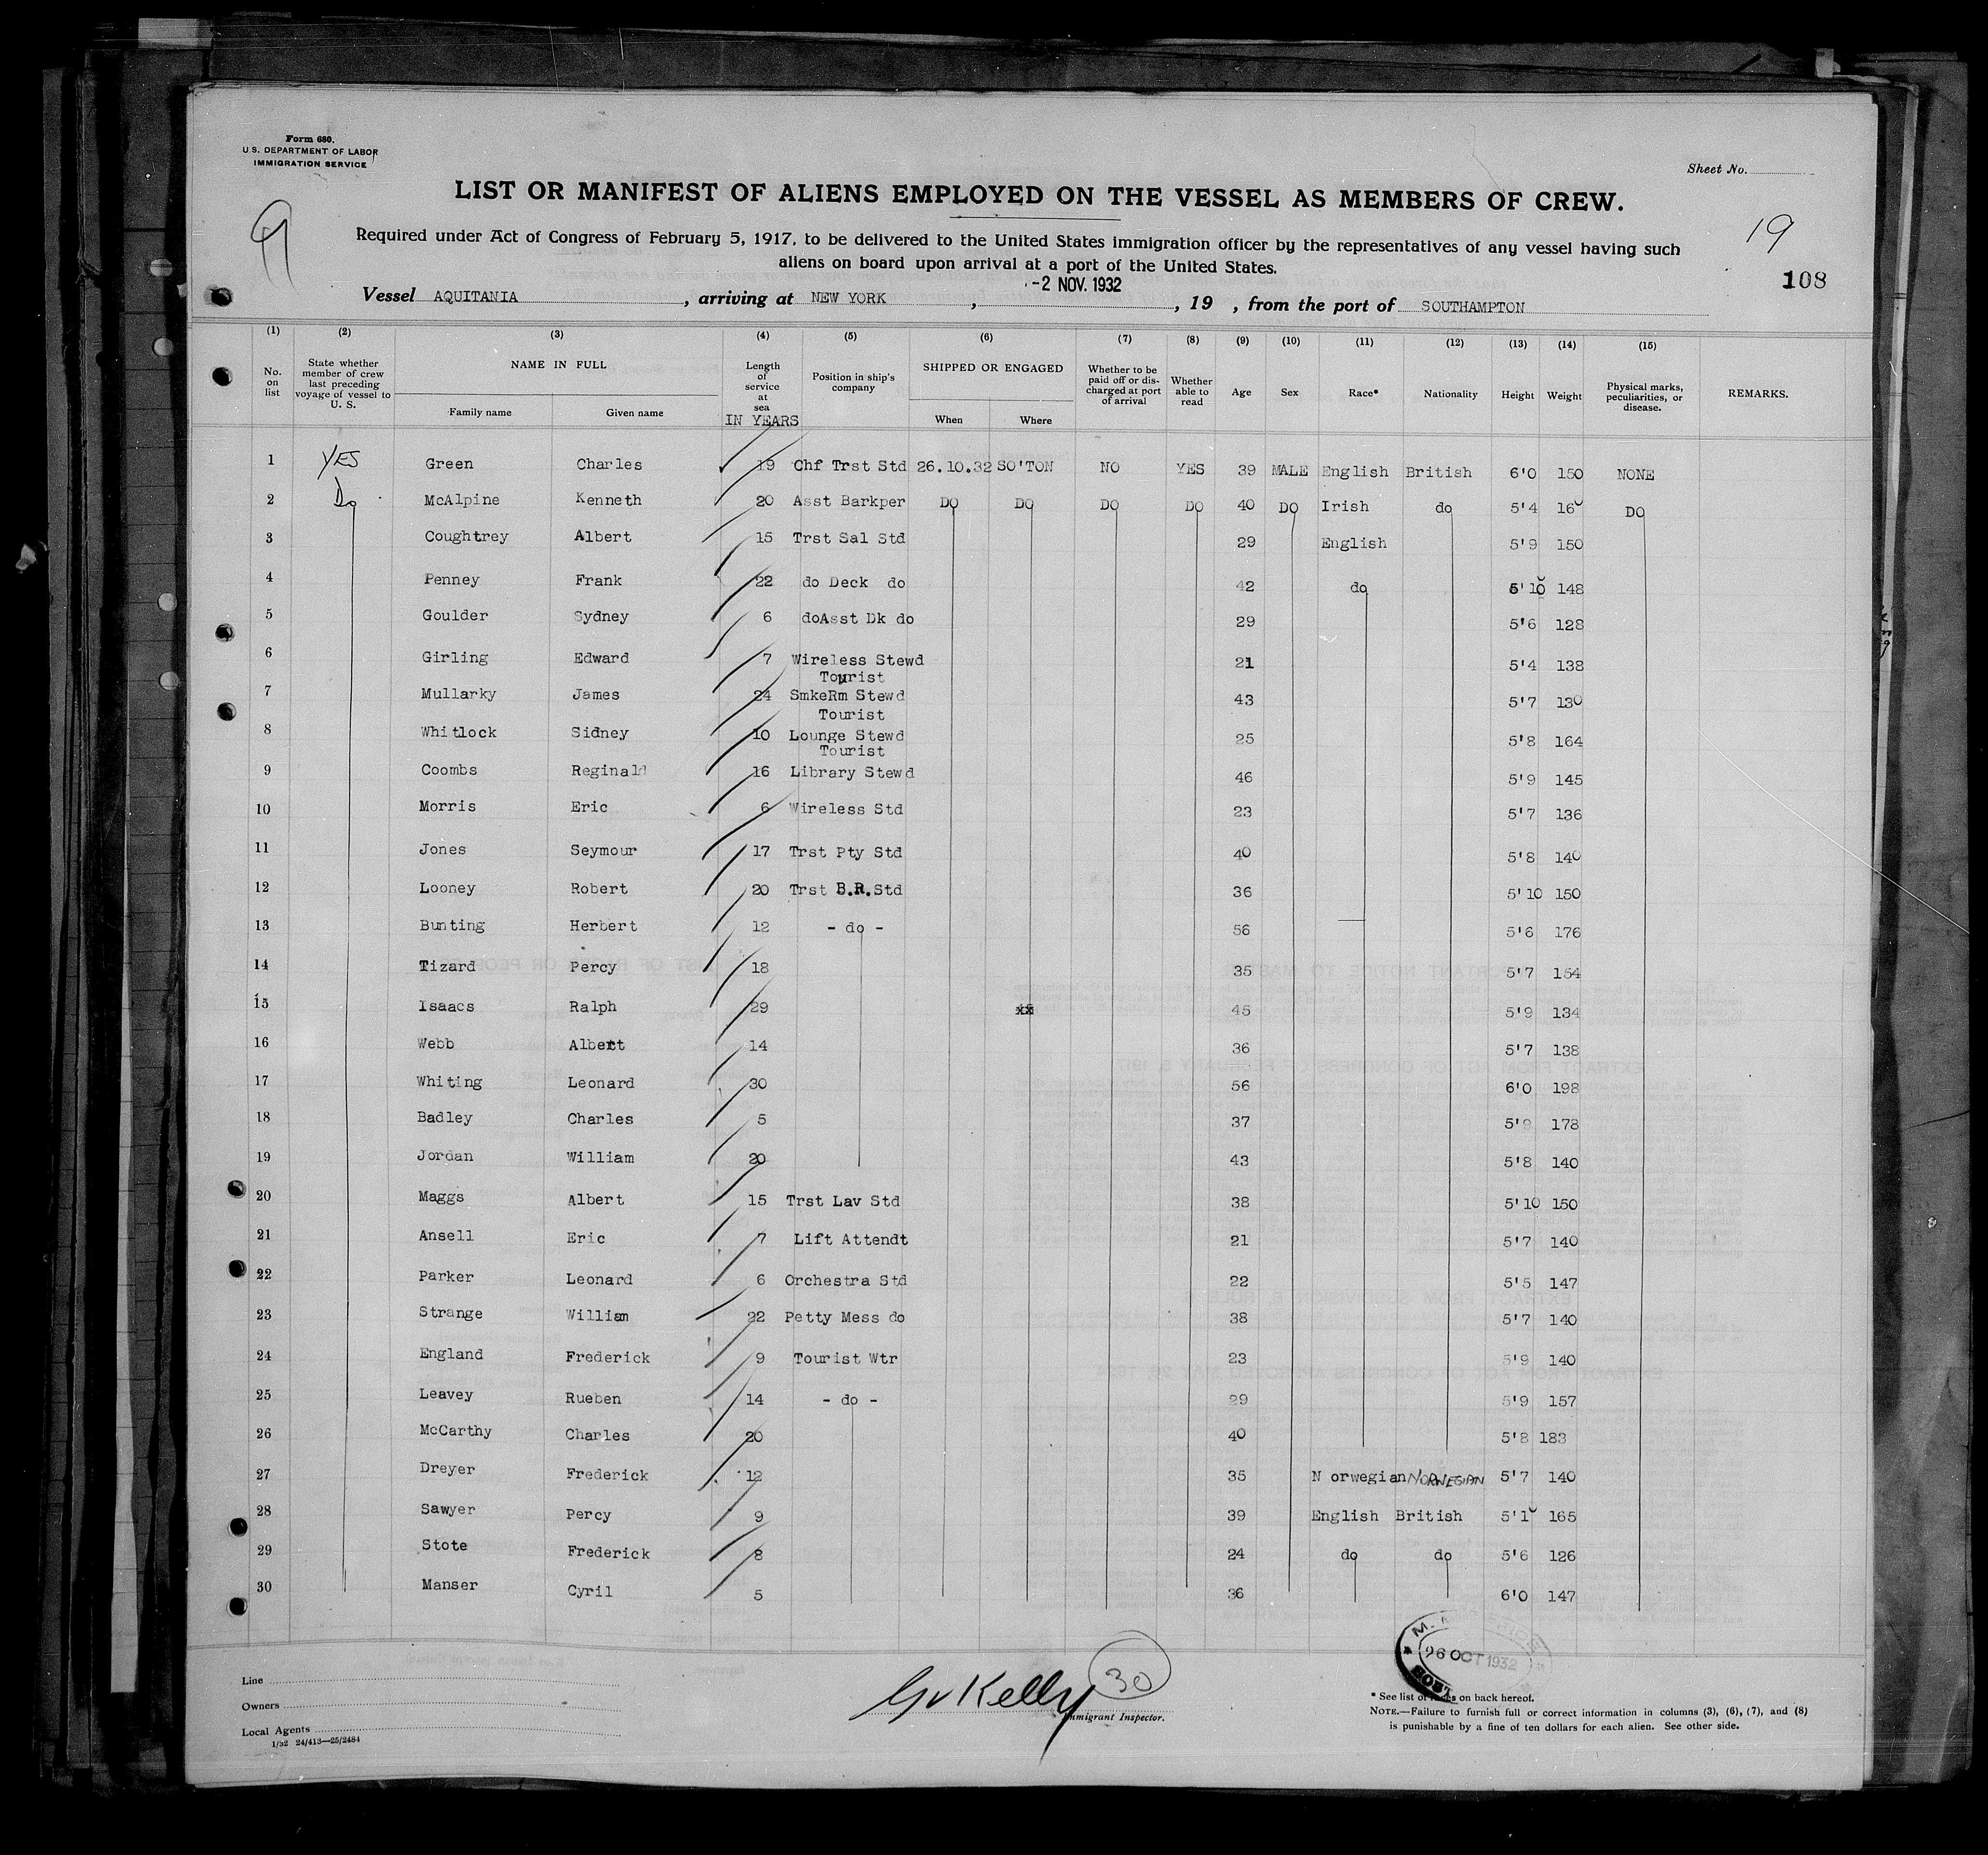 Form 680.
U. S. DEPARTMENT OF LABOR
IMMIGRATION SERVICE
Sheet No.
LIST OR MANIFEST OF ALIENS EMPLOYED ON THE VESSEL AS MEMBERS OF CREW.
9
19
Required under Act of Congress of February 5, 1917, to be delivered to the United States immigration officer by the representatives of any vessel having such
aliens on board upon arrival at a port of the United States.
108
-2 NOV. 1932
Vessel AQUITANIA, arriving at NEW YORK, , 19 , from the port of SOUTHAMPTON
(1) (2) (3) (4) (5) (6) (7) (8) (9) (10) (11) (12) (13) (14) (15)
No. on list State whether member of crew last preceding voyage of vessel to U. S. NAME IN FULL Length of service at sea IN YEARS Position in ship's company SHIPPED OR ENGAGED Whether to be paid off or discharged at port of arrival Whether able to read Age Sex Race* Nationality Height Weight Physical marks, peculiarities, or disease. REMARKS.
Family name Given name When Where
1 YES Green Charles 19 Chf Trst Std 26.10.32 SO'TON NO YES 39 MALE English British 6'0 150 NONE
2 Do McAlpine Kenneth 20 Asst Barkper DO DO DO DO 40 DO Irish do 5'4 160 DO
3 Coughtrey Albert 15 Trst Sal Std 29 English 5'9 150
4 Penney Frank 22 do Deck do 42 do 5'10 148
5 Goulder Sydney 6 doAsst Dk do 29 5'6 128
6 Girling Edward 7 Wireless Stewd 21 5'4 138
Tourist
7 Mullarky James 24 SmkeRm Stewd 43 5'7 130
Tourist
8 Whitlock Sidney 10 Lounge Stewd 25 5'8 164
Tourist
9 Coombs Reginald 16 Library Stewd 46 5'9 145
10 Morris Eric 6 Wireless Std 23 5'7 136
11 Jones Seymour 17 Trst Pty Std 40 5'8 140
12 Looney Robert 20 Trst B.R.Std 36 5'10 150
13 Bunting Herbert 12 - do - 56 5'6 176
14 Tizard Percy 18 35 5'7 154
15 Isaacs Ralph 29 45 5'9 134
16 Webb Albert 14 36 5'7 138
17 Whiting Leonard 30 56 6'0 198
18 Badley Charles 5 37 5'9 178
19 Jordan William 20 43 5'8 140
20 Maggs Albert 15 Trst Lav Std 38 5'10 150
21 Ansell Eric 7 Lift Attendt 21 5'7 140
22 Parker Leonard 6 Orchestra Std 22 5'5 147
23 Strange William 22 Petty Mess do 38 5'7 140
24 England Frederick 9 Tourist Wtr 23 5'9 140
25 Leavey Rueben 14 - do - 29 5'9 157
26 McCarthy Charles 20 40 5'8 183
27 Dreyer Frederick 12 35 N orwegian NORWEGIAN 5'7 140
28 Sawyer Percy 9 39 English British 5'10 165
29 Stote Frederick 8 24 do do 5'6 126
30 Manser Cyril 5 36 6'0 147
26 OCT 1932
Line
Owners
Local Agents
1/32 24/413—25/2484
GvKelly
30
Immigrant Inspector.
* See list of races on back hereof.
NOTE.—Failure to furnish full or correct information in columns (3), (6), (7), and (8)
is punishable by a fine of ten dollars for each alien. See other side.